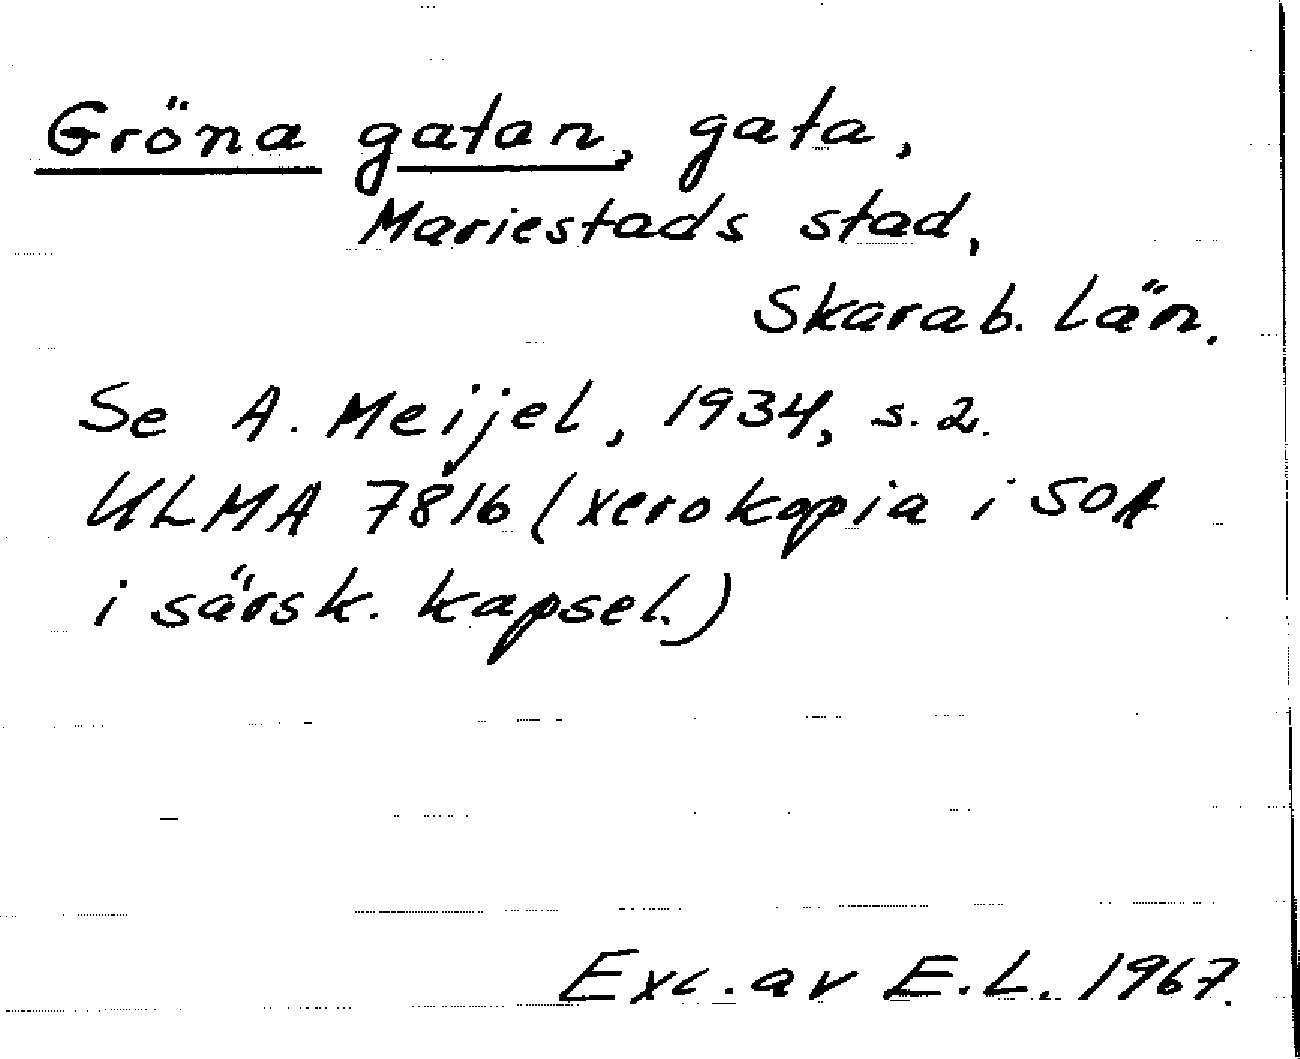 Gröna gatan, gata,
Mariestads stad,
Skarab. län.
Se A. Meijel, 1934, s. 2.
ULMA 7816 (xerokopia i SOA
i särsk. kapsel.)
Exc. av E.L. 1967.